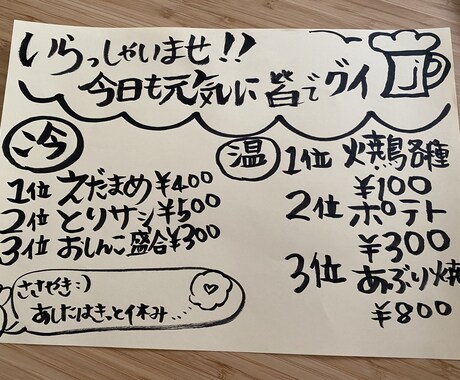 いらっしゃいませ!!
今日も元気に皆でグイ
冷
1位 えだまめ ¥400
2位 とりサシ ¥500
3位 おしんこ盛合 ¥300
ささやき:)
あしたはきっと休み...
温
1位 焼鳥各種
¥100
2位 ポテト
¥300
3位 あぶり焼
¥800